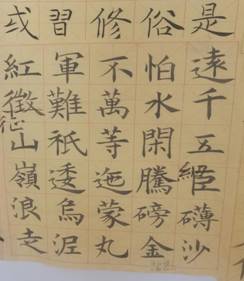 或習修俗是
紅軍不怕遠
徵難萬水千
征
山祇等閑五
嶺逶迤騰細
浪烏蒙磅礴
走泥丸金沙